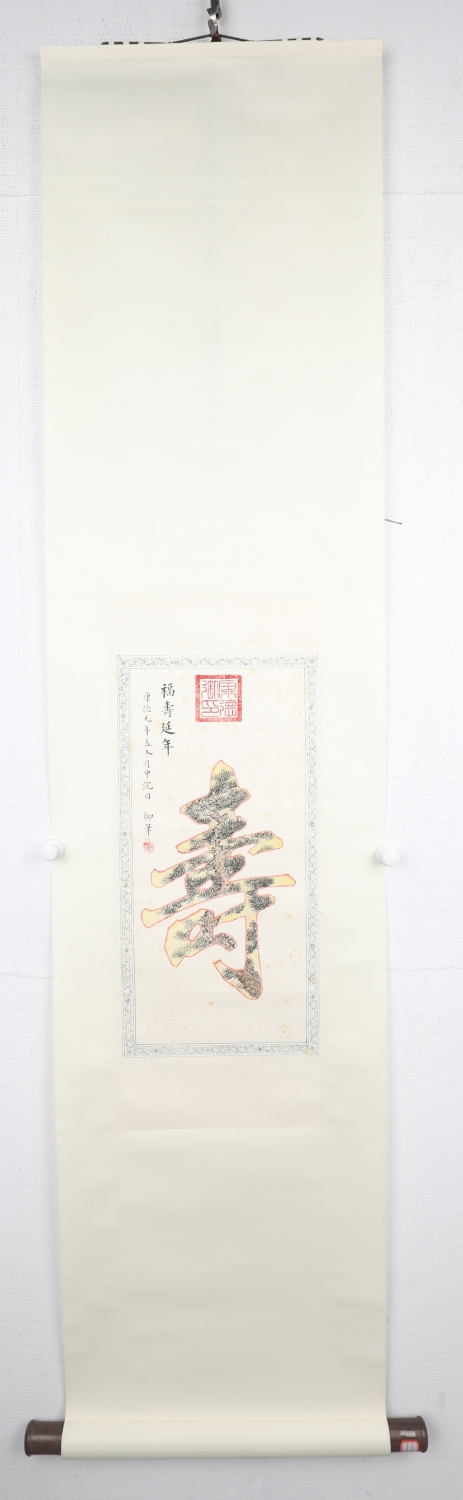 福壽延年
康德元年五久月中浣日 御筆
康德
御印
壽